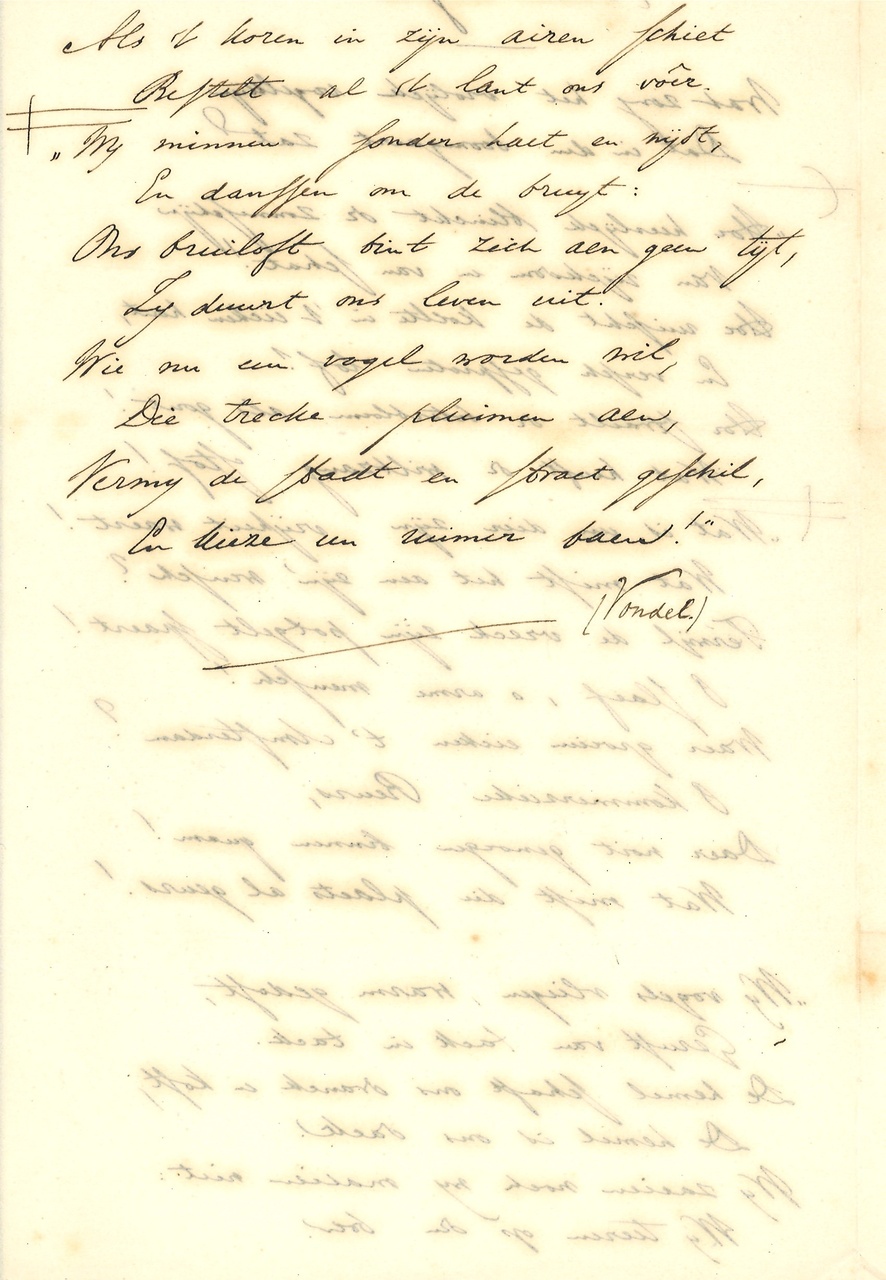 Als 't koren in zijn airen schiet
Bestelt al 't lant ons vôêr.
„Wy minnen sonder haet en nijdt,
En danssen om de bruyt:
Ons bruiloft bint zich aen geen tijt,
Zy duurt ons leven uit.
Wie nu een vogel worden wil,
Die trecke pluimen aen,
Vermy de stadt en straet geschil,
En kieze een ruimer baen!"
(Vondel.)